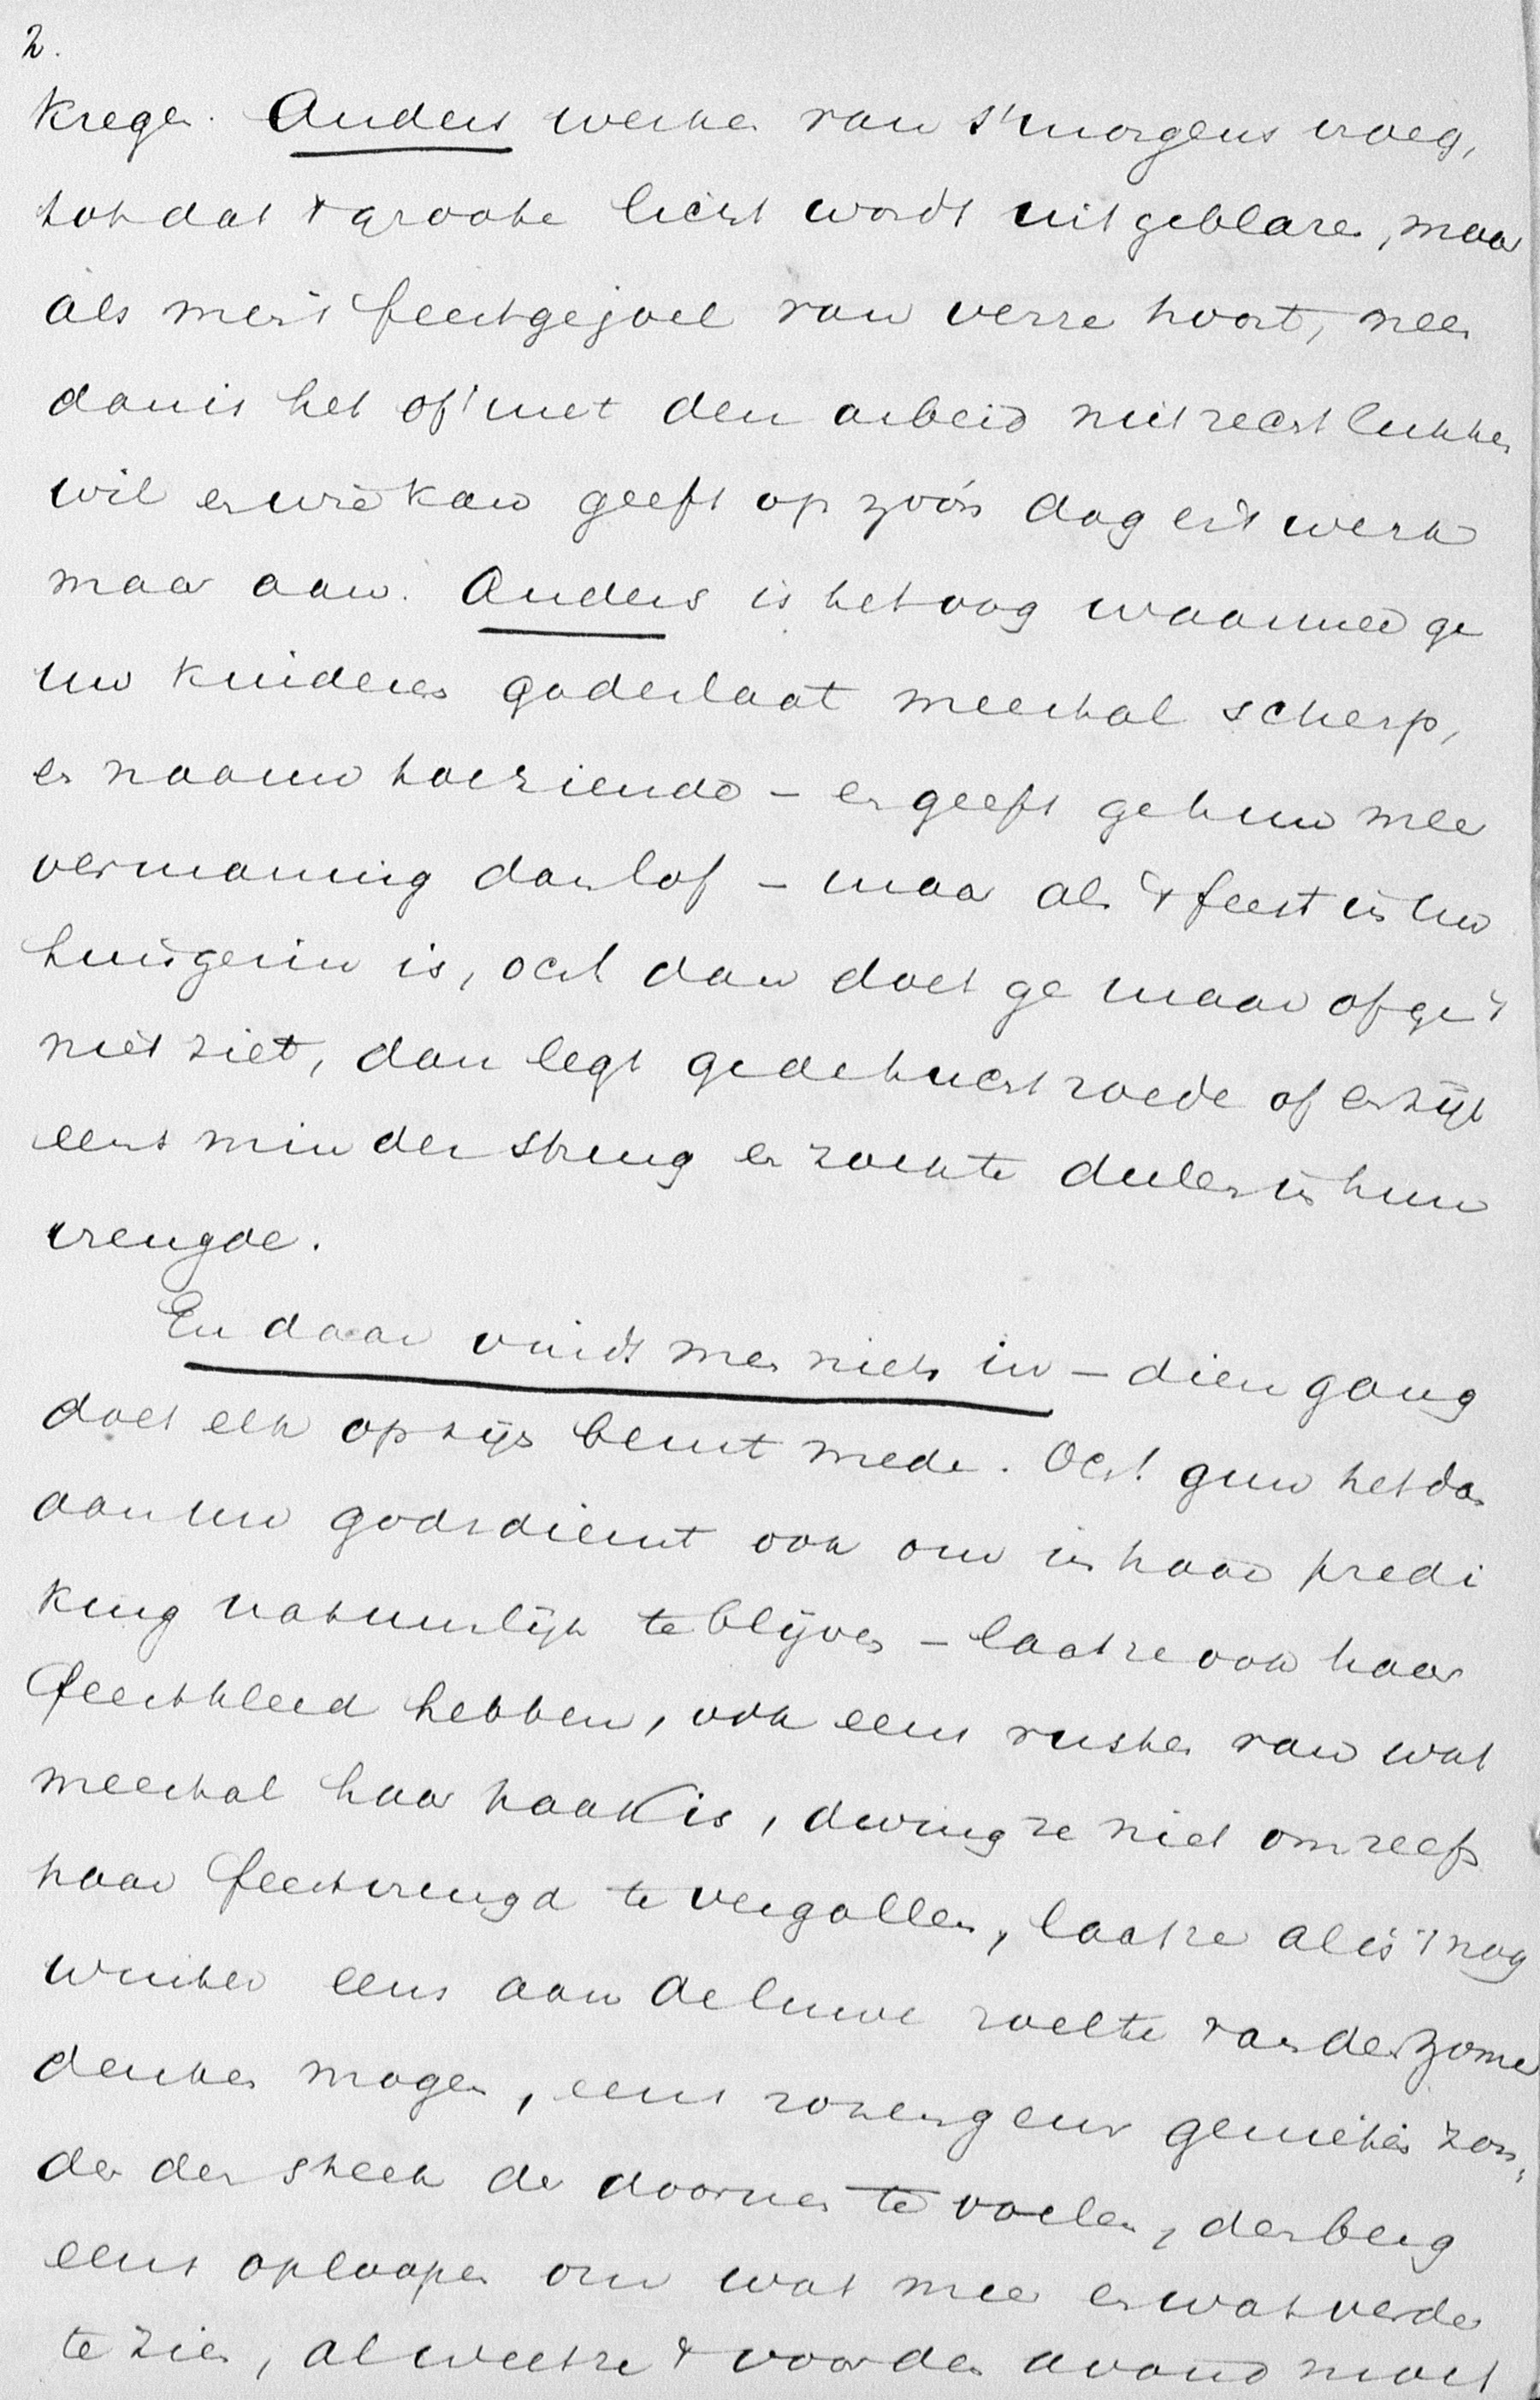 2.
kregen. Anders werken van s'morgens vroeg,
tot dat 't groote licht wordt uitgeblazen, maar
als men 't feestgejoel van verre hoort, neen
dan is het of 't met den arbeid niet recht lukken
wil en wie kan geeft op zóó'n dag er 't werk
maar aan. Anders is het oog waarmeê ge
uw kinderen gadeslaat meestal scherp,
en naauw toeziende – en geeft ge hun meer
vermaning dan lof – maar als 't feest in uw
huisgezin is, och dan doet ge maar of ge 't
niet ziet, dan legt ge de tuchtroede af en zijt
eens minder streng en zoekt te deelen in hun
vreugde.
En daar vindt men niets in – dien gang
doet elk op zijn beurt mede. Och! gun het dan
aan uw godsdienst ook om in haar predi
king natuurlijk te blijven – laat ze ook haar
feestkleed hebben, ook eens rusten van wat
meestal haar taak is, dwing ze niet om zelfs
haar feestvreugd te vergallen, laat ze al is 't nog
winter eens aan de luwe zoelte van den zomer
denken mogen, eens rozengeur genieten zon,
der den steek der doornen te voelen, den berg
eens oploopen om wat meer en wat verder
te zien, al weet ze 't voor den avond moet